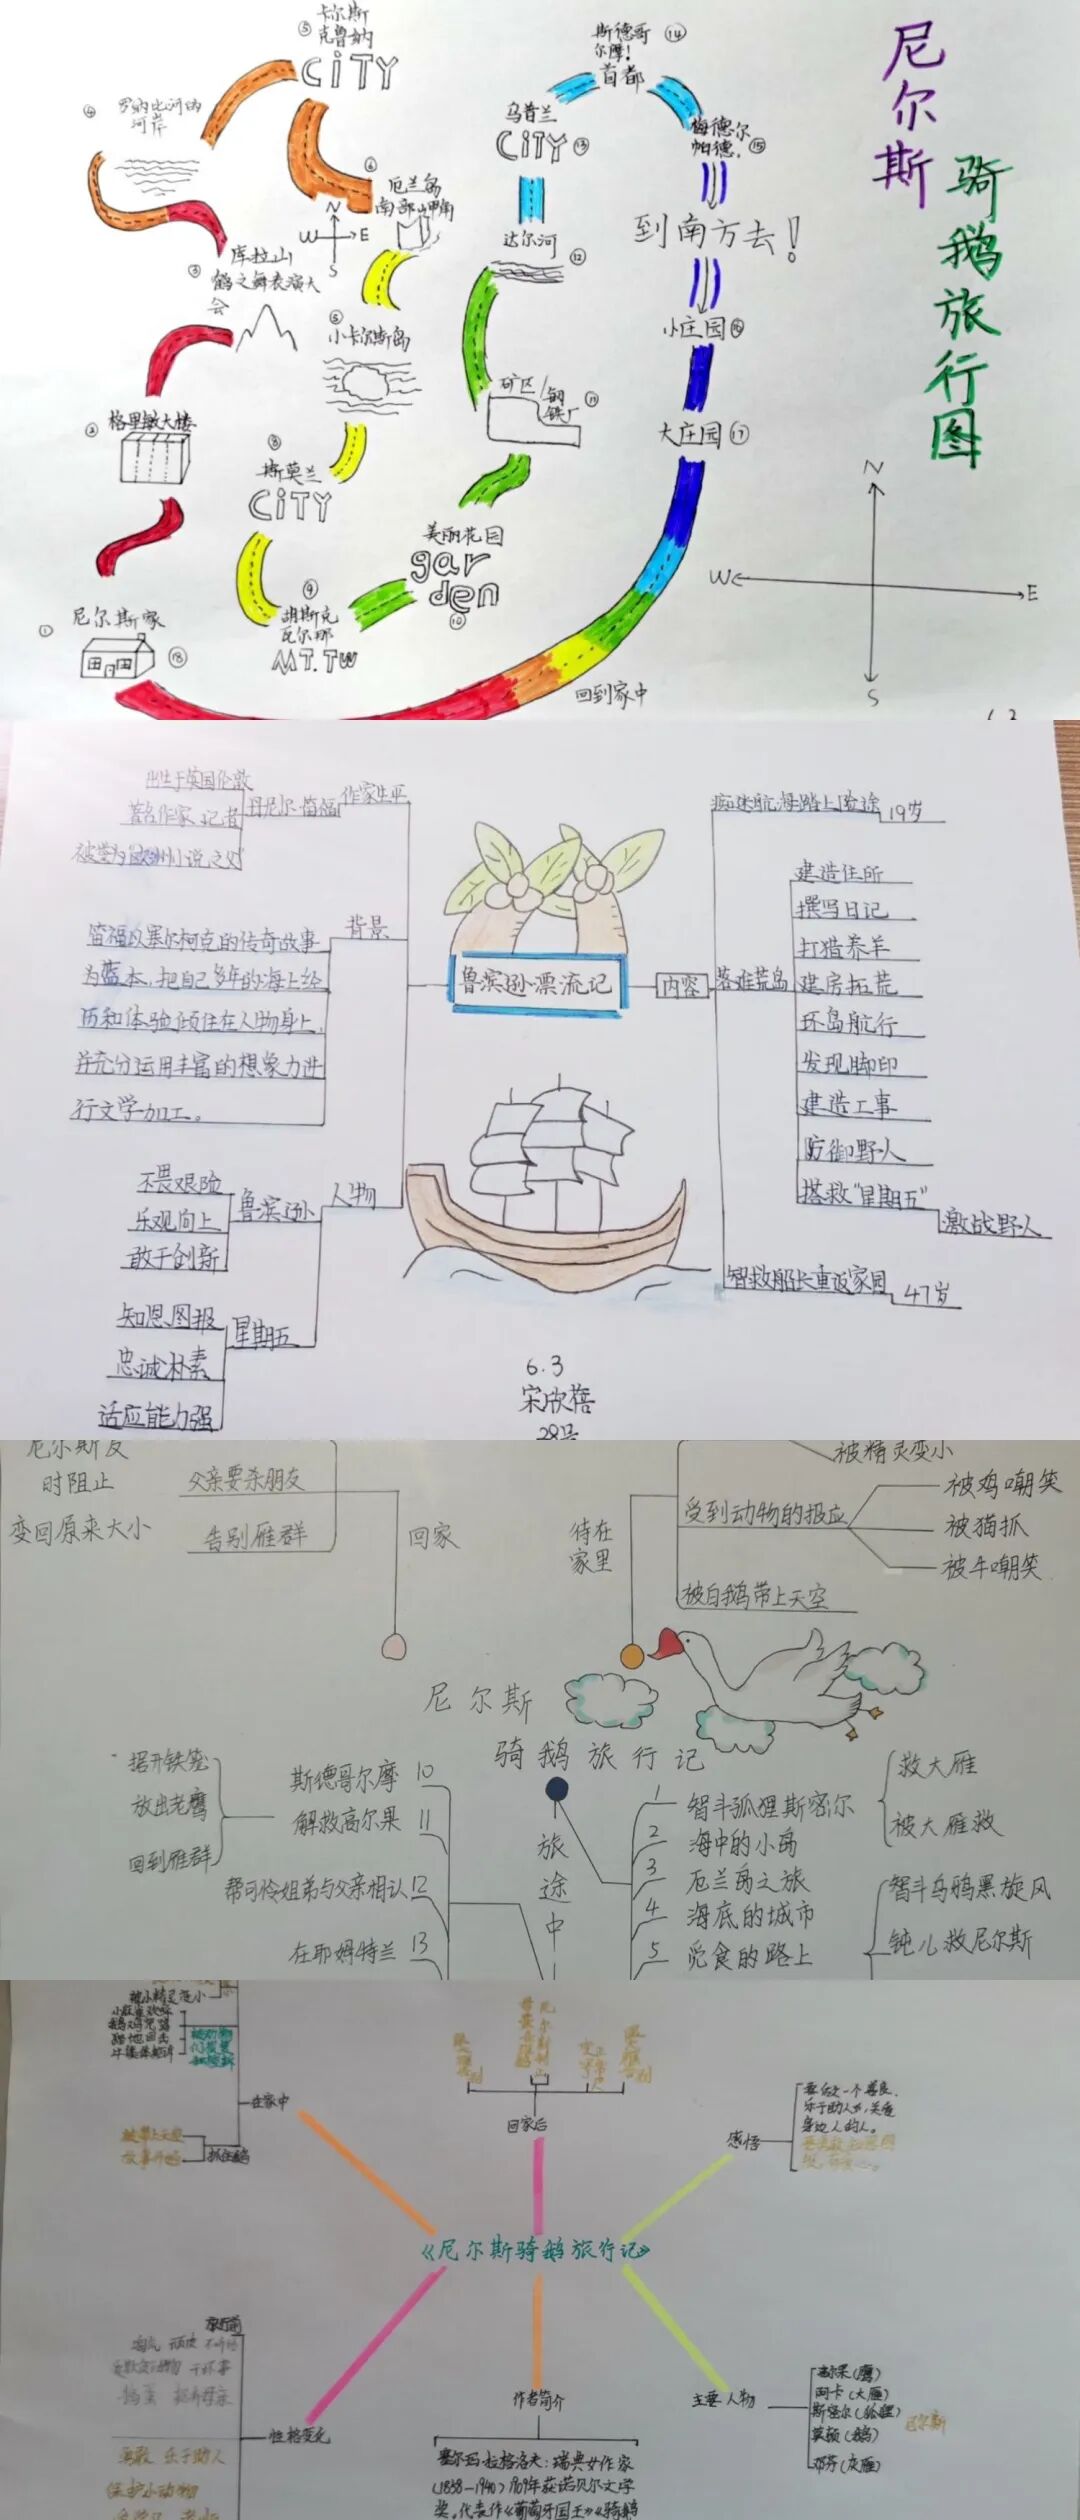 尼尔斯
骑鹅旅行图
⑤
卡尔斯
克鲁纳
CiTY
④
罗纳比河的
河岸
⑥
厄兰岛
南部
N
W
E
S
③
库拉山
鹤之舞表演大
会
小卡尔斯岛
②
格里敏大楼
⑧
斯莫兰
CiTY
⑨
胡斯克
瓦尔那
MT.TW
美丽花园
garden
⑩
矿区/钢
铁厂
⑪
达尔河
⑫
乌普兰
CiTY
⑬
斯德哥
尔摩!
首都
⑭
梅德尔
帕德.
⑮
到南方去!
小庄园
⑯
大庄园
⑰
①
尼尔斯家
⑱
回到家中
N
W
E
S
鲁滨逊漂流记
作家生平
丹尼尔·笛福
出生于英国伦敦
著名作家 记者
被誉为"欧洲小说之父"
背景
笛福以塞尔柯克的传奇故事
为蓝本,把自己多年的海上经
历和体验倾注在人物身上,
并充分运用丰富的想象力进
行文学加工。
人物
鲁滨逊
不畏艰险
乐观向上
敢于创新
星期五
知恩图报
忠诚朴素
适应能力强
内容
痴迷航海踏上险途
19岁
落难荒岛
建造住所
撰写日记
打猎养羊
建房拓荒
环岛航行
发现脚印
建造工事
防御野人
搭救"星期五"
激战野人
智救船长重返家园
47岁
6.3
宋欣蓓
28号
时阻止
变回原来大小
父亲要杀朋友
告别雁群
回家
待在
家里
被精灵变小
受到动物的报应
被鸡嘲笑
被猫抓
被牛嘲笑
被白鹅带上天空
尼尔斯
骑鹅旅行记
旅途中
1 智斗狐狸斯密尔
救大雁
被大雁救
2 海中的小岛
3 厄兰岛之旅
4 海底的城市
5 觅食的路上
智斗乌鸦黑旋风
钝儿救尼尔斯
斯德哥尔摩 10
解救高尔果 11
据开铁笼
放出老鹰
回到雁群
帮可怜姐弟与父亲相认 12
在耶姆特兰 13
《尼尔斯骑鹅旅行记》
在家中
回家后
感悟
要做一个善良,
乐于助人的,关爱
身边人的人。
性格变化
作者简介
塞尔玛·拉格洛夫:瑞典女作家
(1858—1940)1909年获诺贝尔文学
奖。代表作《葡萄牙国王》《骑鹅
主要人物
高尔果(鹰)
阿卡(大雁)
斯密尔(狐狸)
莫顿(鹅)
邓芬(灰雁)
尼尔斯
勇敢 乐于助人
保护小动物